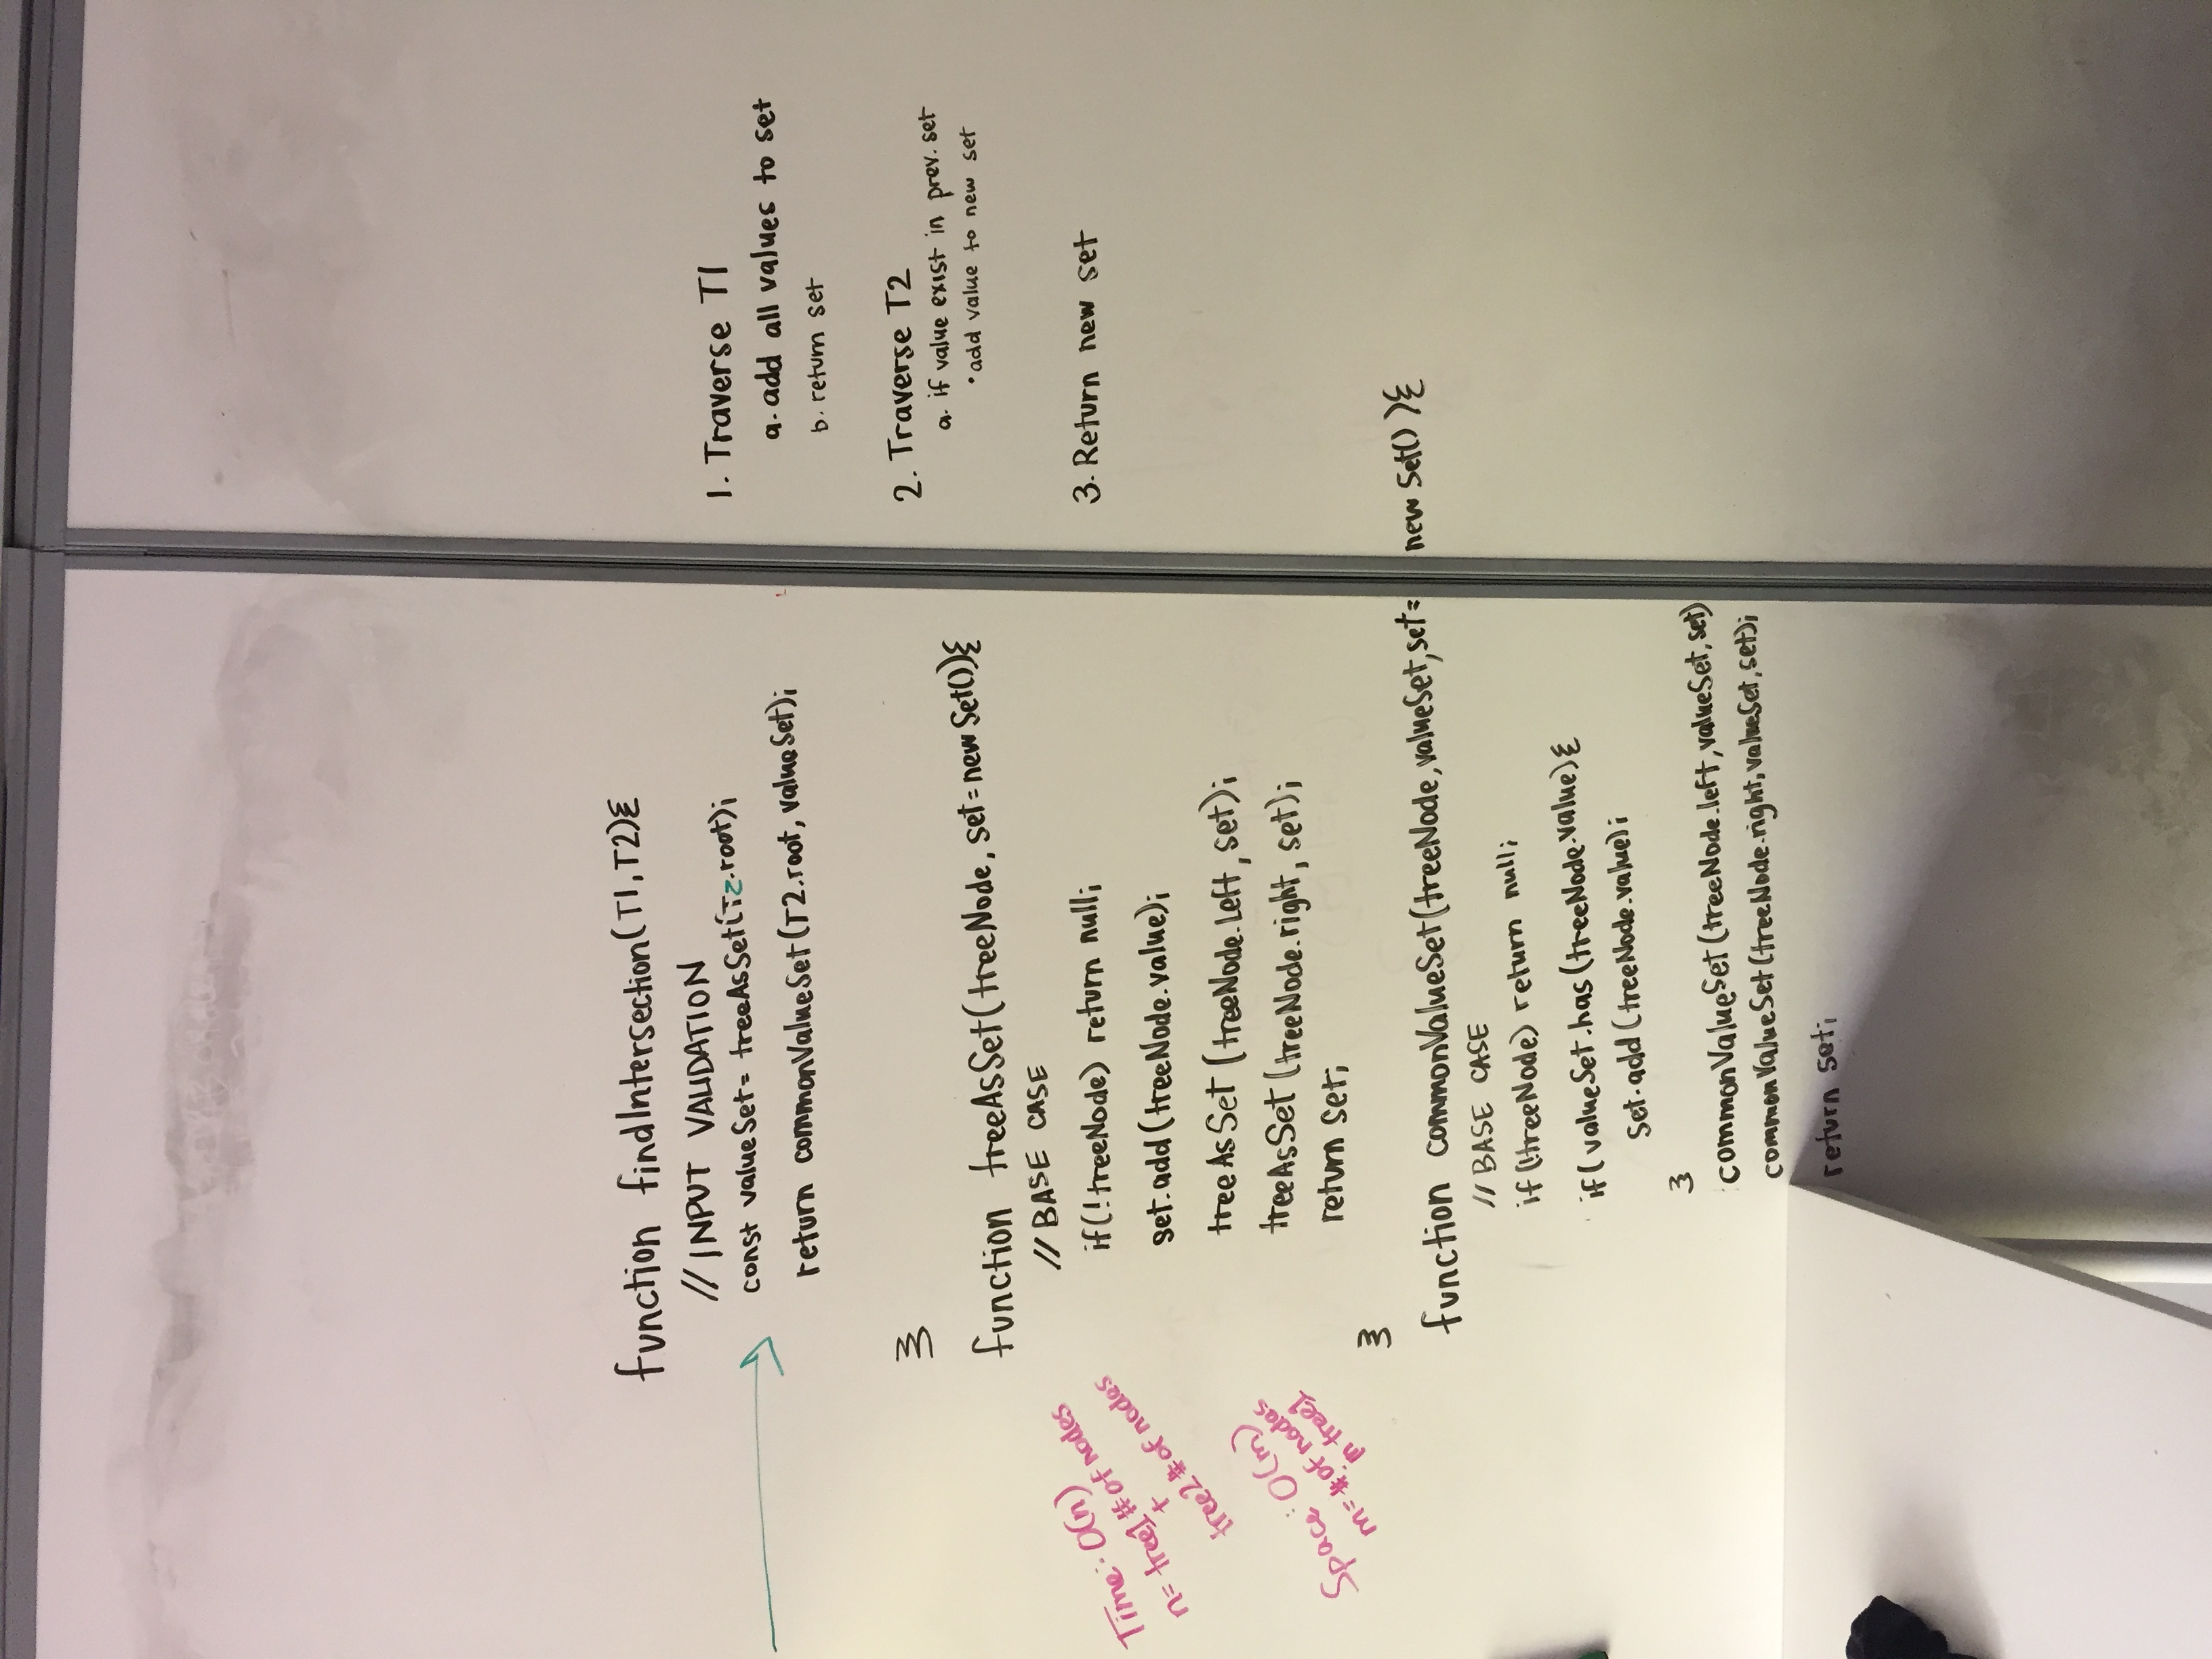 function findIntersection(T1,T2){
// INPUT VALIDATION
const valueSet= treeAsSet(T2.root);
return commonValueSet(T2.root, valueSet);
}
function treeAsSet(treeNode, set=new Set()){
// BASE CASE
if(!treeNode) return null;
set.add(treeNode.value);
treeAsSet(treeNode.Left, set);
treeAsSet(treeNode.right, set);
return set;
}
function commonValueSet(treeNode, valueSet, set= new Set() ){
// BASE CASE
if(!treeNode) return null;
if(valueSet.has(treeNode.value){
set.add(treeNode.value);
}
commonValueSet(treeNode.left, valueSet, set)
commonValueSet(treeNode.right, valueSet, set);
return set;
Time: O(n)
n= tree1 # of nodes
+
tree2 # of nodes
Space: O(m)
m= # of nodes
in tree1
1. Traverse T1
a. add all values to set
b. return set
2. Traverse T2
a. if value exist in prev. set
• add value to new set
3. Return new set